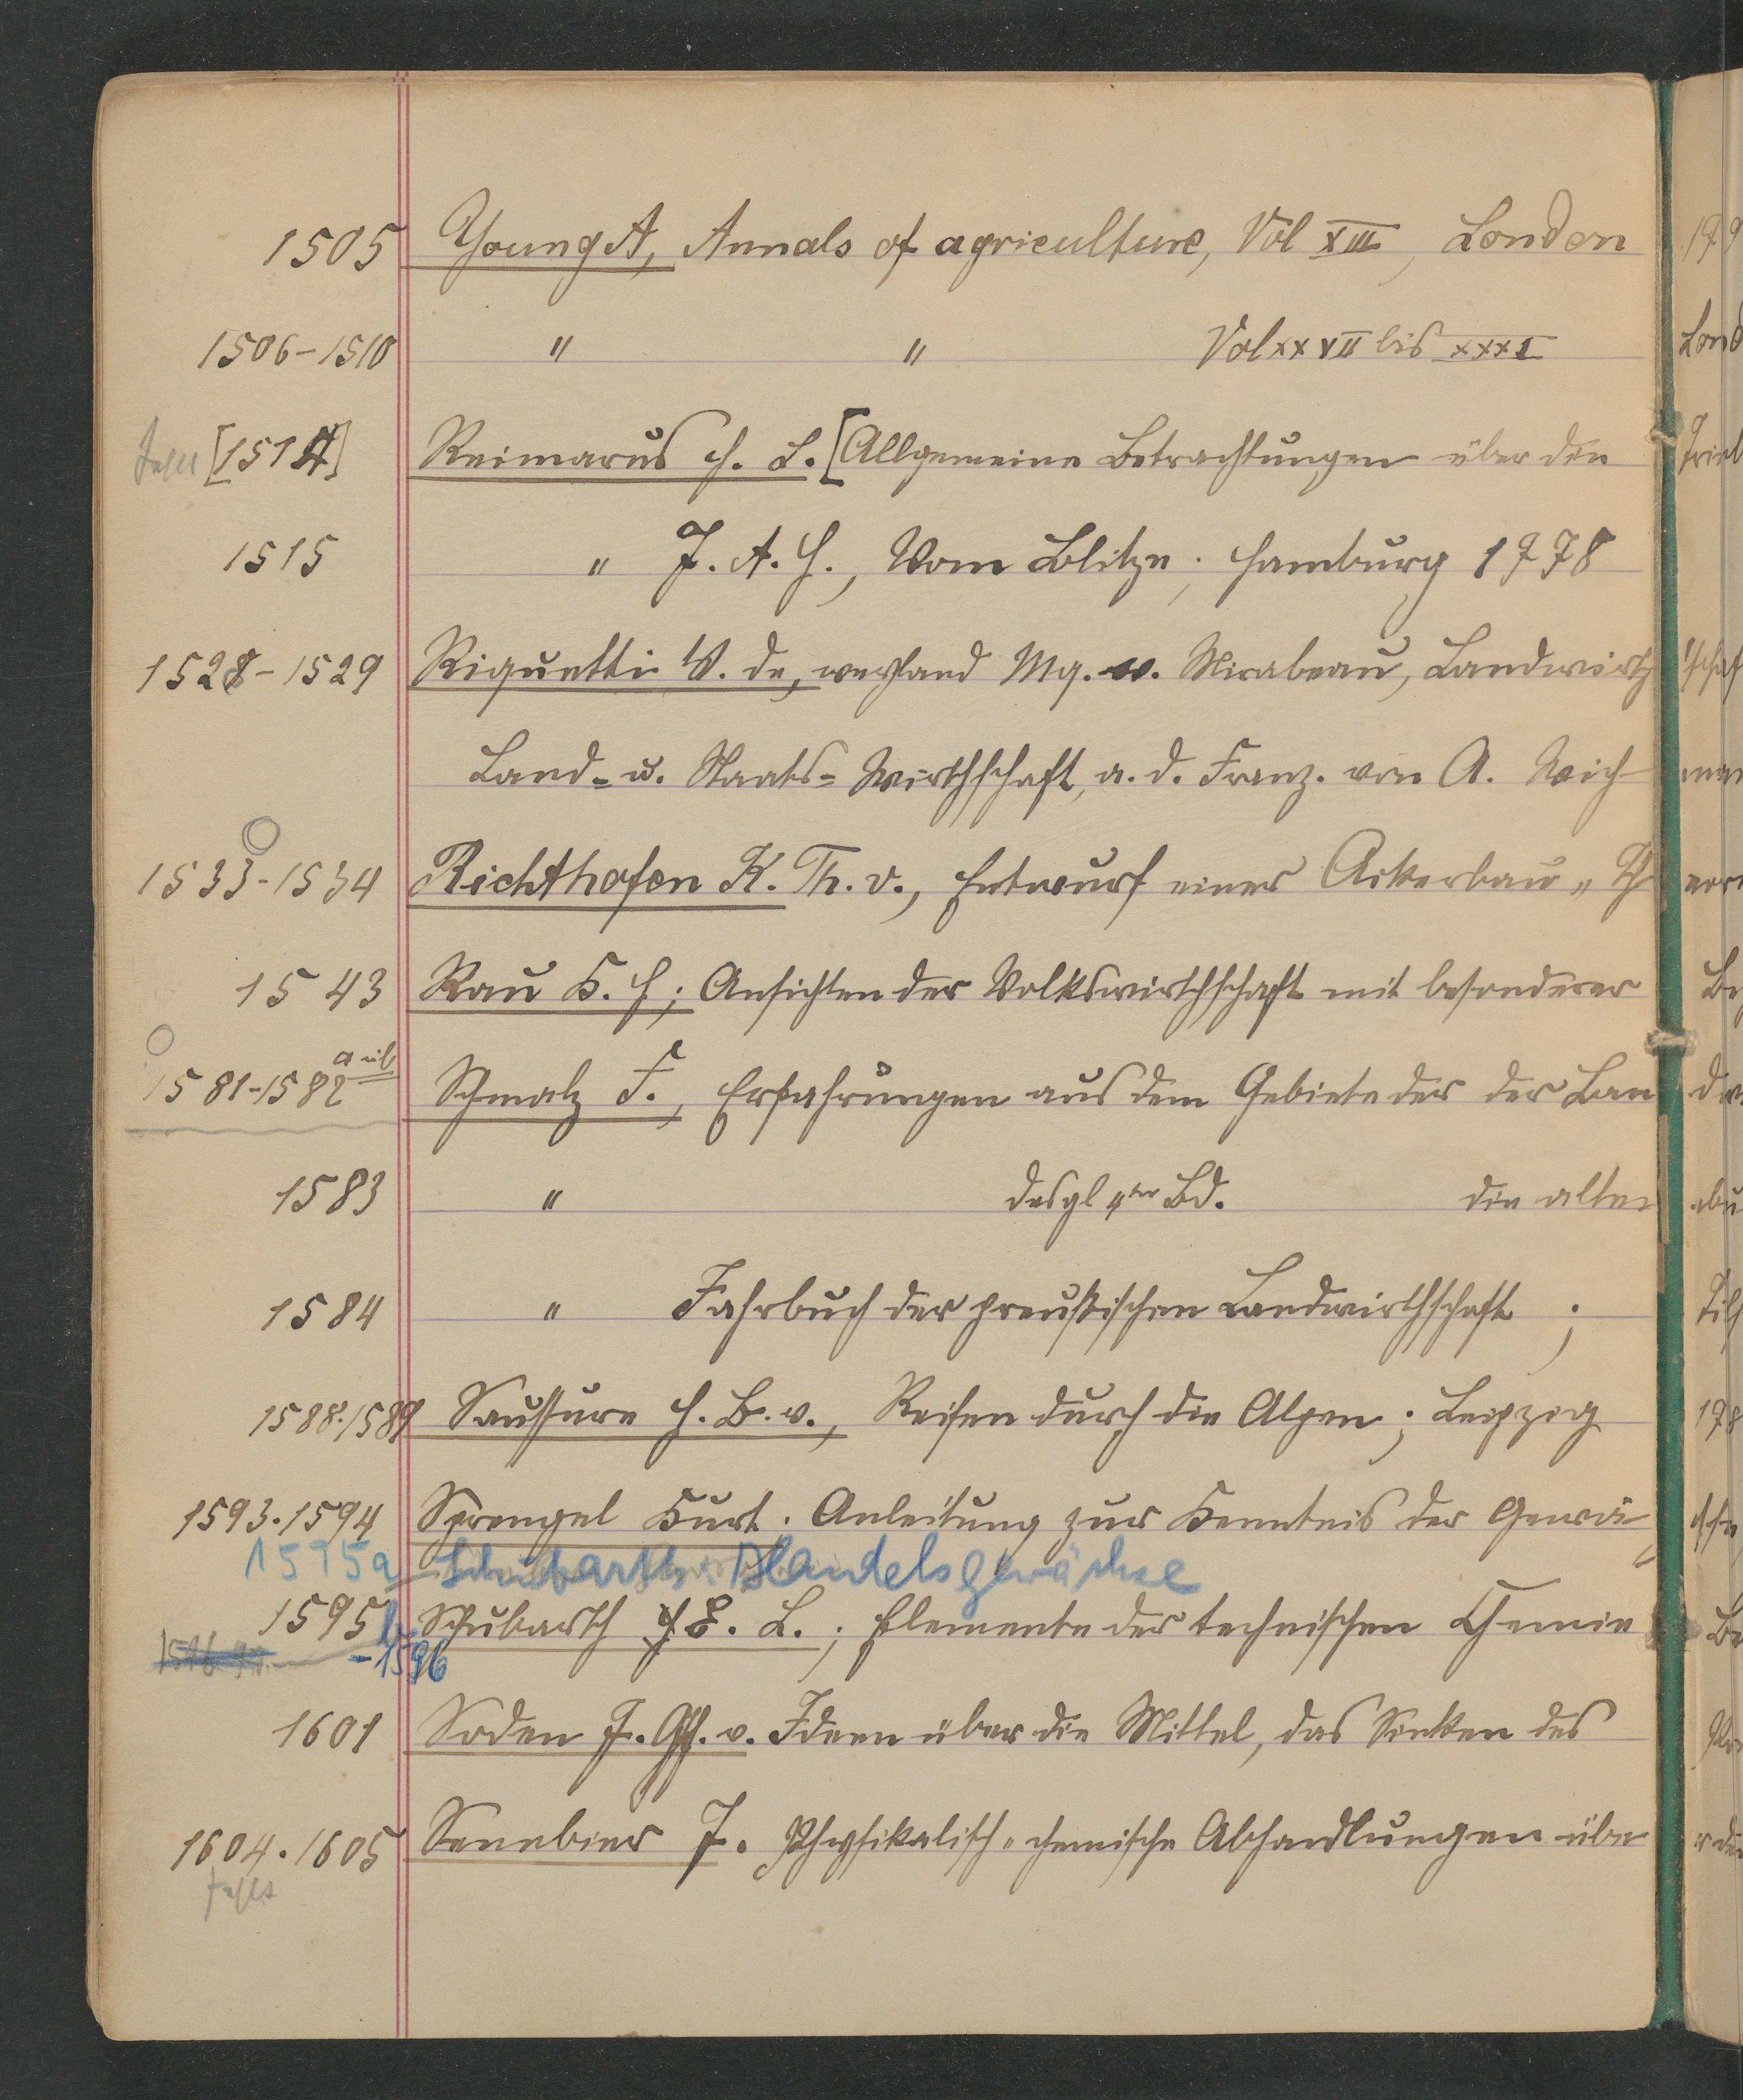 1505 Young A, Annals of agriculture, Vol XIII, London 179
1506-1510 " " Vol XXVII bis XXXI Lond
fehlt [1514] Reimarus H. S. [Allgemeine Betrachtungen über die Trieb
1515 " J. A. H., Vom Blitze; Hamburg 1778
1528-1529 Riquetti V. de, weyland Mg. v. Mirabeau, Landwirth schaf
Land- u. Staats-Wirthschaft, a. d. Franz. von A. Wich man
1533-1534 Richthofen K. Th. v., Entwurf einer Ackerbau- Th eori
1543 Rau K. H; Ansichten der Volkswirthschaft mit besonderer Be
1581-1582 a u b Schmalz F., Erfahrungen aus dem Gebiete der der Lan dw
1583 " desgl Bd. die alten
1584 " Jahrbuch der preußischen Landwirthschaft; Til
1588.1589 Saussure H. B. v., Reisen durch die Alpen; Leipzig 178
1593.1594 Sprengel Kurt. Anleitung zur Kenntnis der Gewä chse
1595a Schubarth: Handelsgewächse
1595b Schubarth E. L.; Elemente der technischen Chemie Be
-1596
1601 Soden J. Gf. v. Ideen über die Mittel, das Sinken des
1604.1605 Senebier J. Physikalisch-chemische Abhandlungen übe r den
fehlt